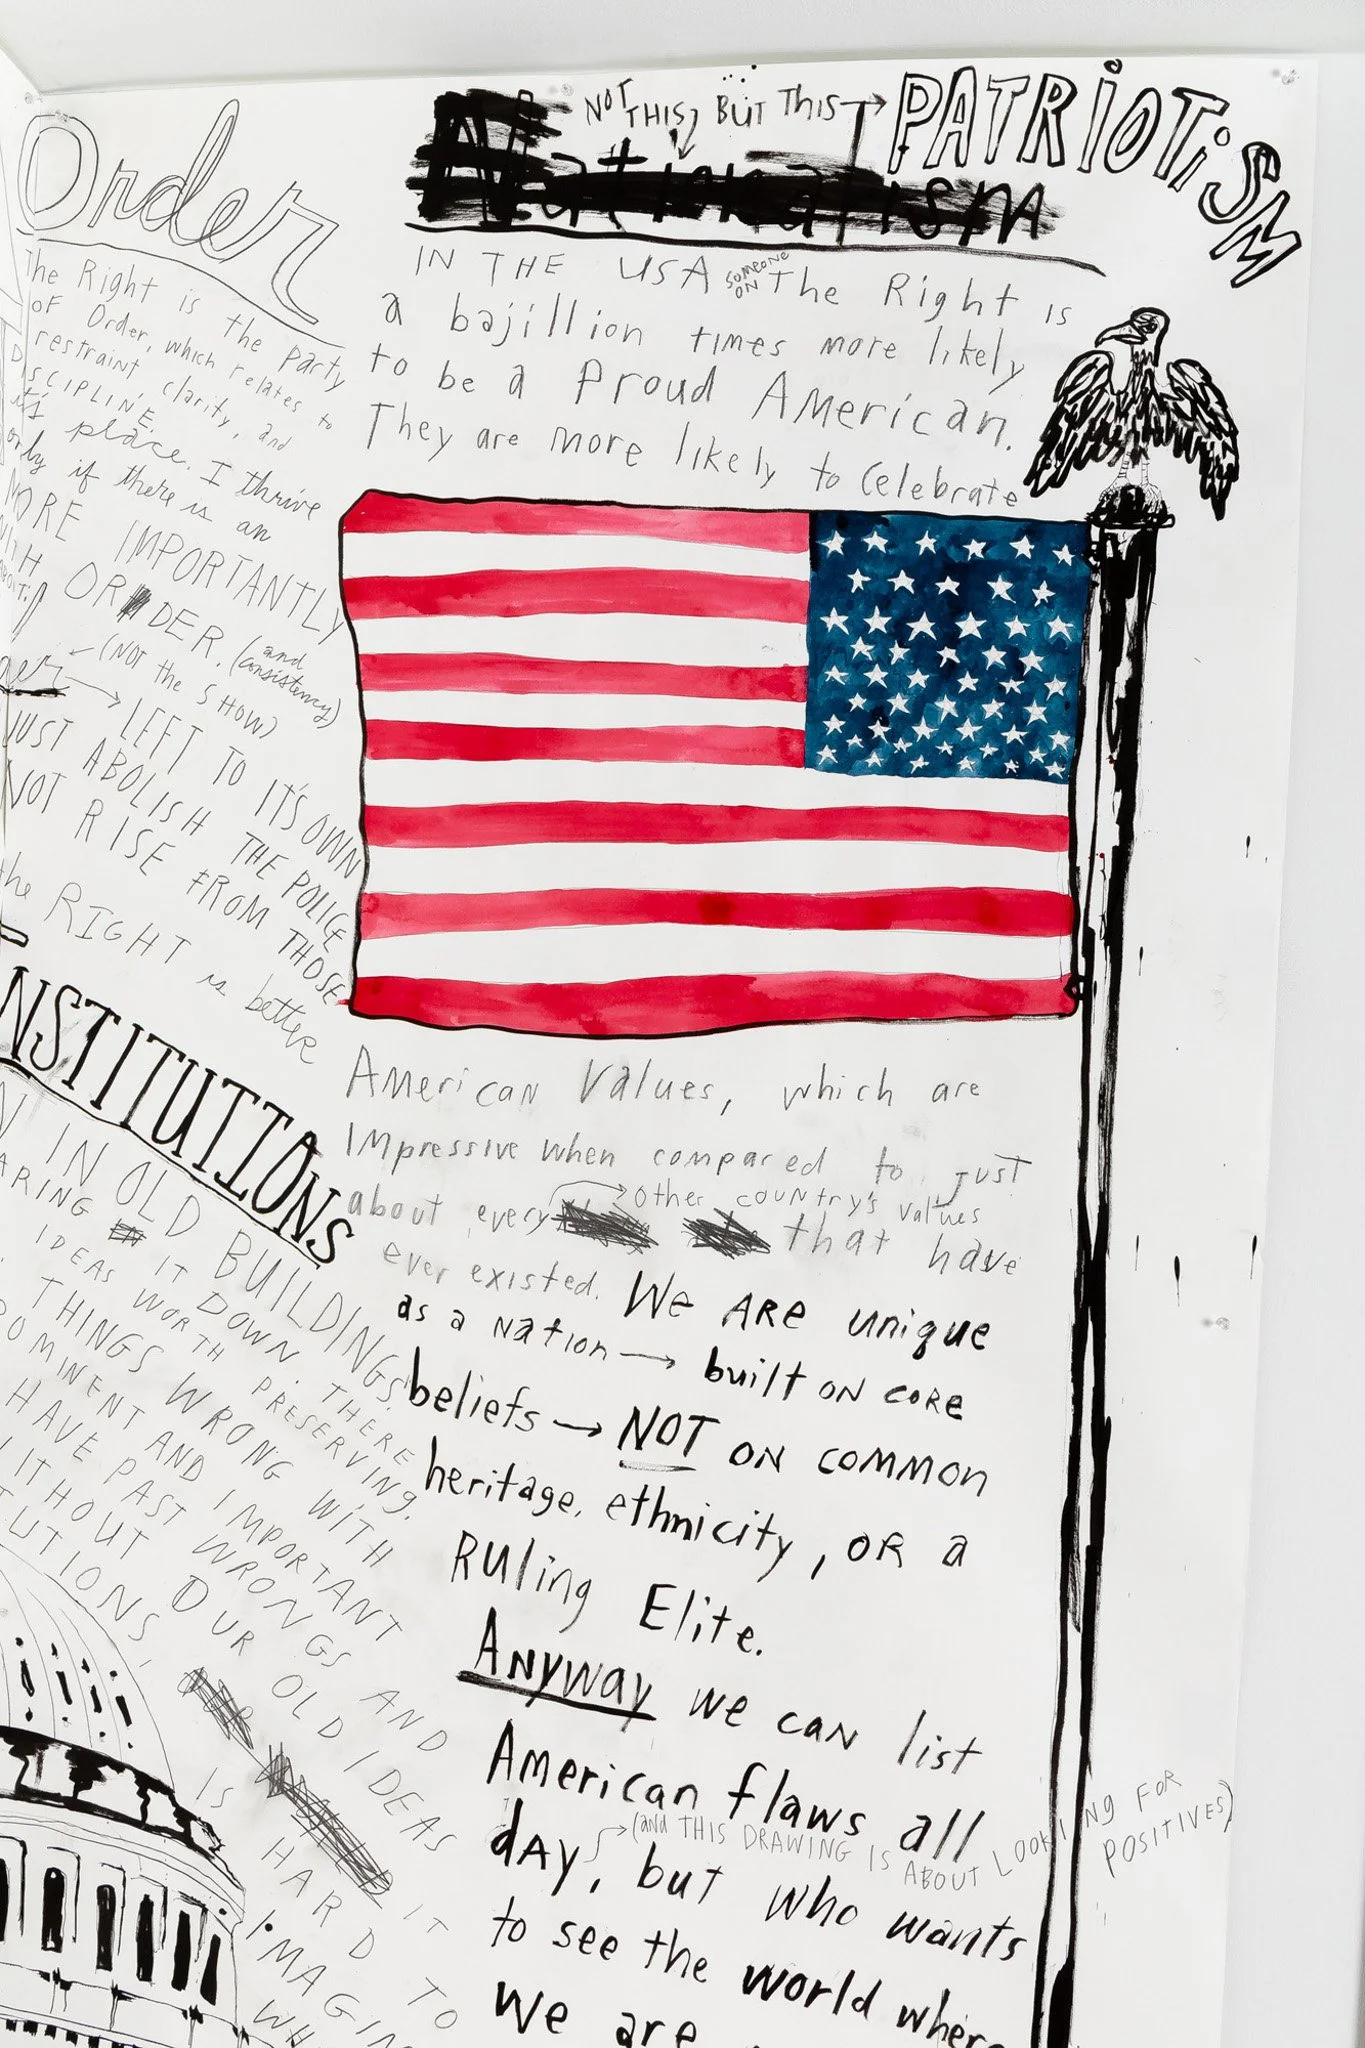 Order
The Right is the party
of Order, which relates to
restraint, clarity, and
DISCIPLINE.
it's place. I thrive
only if there is an
MORE IMPORTANTLY
WITH ORDER. (and consistency)
(NOT the SHOW)
LEFT TO IT'S OWN
JUST ABOLISH THE POLICE
NOT RISE FROM THOSE
the RIGHT is better
NSTITUTIONS
IN OLD BUILDINGS.
IT DOWN. THERE
IDEAS WORTH PRESERVING.
THINGS WRONG WITH
OMINENT AND IMPORTANT
HAVE PAST WRONGS AND
ITHOUT OUR OLD IDEAS
UTIONS,
IT
IS HARD TO
IMAGIN
NOT THIS, BUT THIS → PATRIOTISM
Nationalism
IN THE USA someone on The Right is
a bajillion times more likely
to be a Proud American.
They are more likely to celebrate
American Values, which are
Impressive when compared to just
about every other country's values
that have
ever existed. We ARE unique
as a nation → built on core
beliefs → NOT on common
heritage, ethnicity, or a
Ruling Elite.
Anyway we can list
American flaws all
day, (and THIS DRAWING IS ABOUT LOOKING FOR POSITIVES)
but who wants
to see the world where
we are